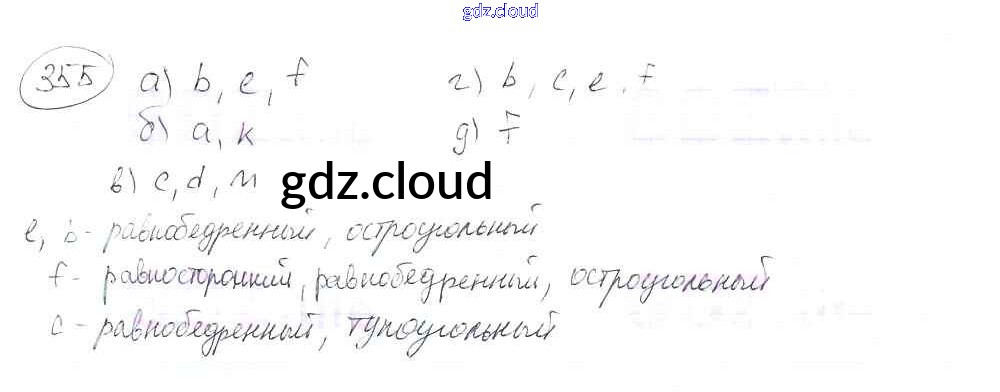 gdz.cloud
355 а) b, e, f г) b, c, e, f
б) a, k д) f
в) c, d, m gdz.cloud
e, b - равнобедренный, остроугольный
f - равносторонний, равнобедренный, остроугольный
c - равнобедренный, тупоугольный